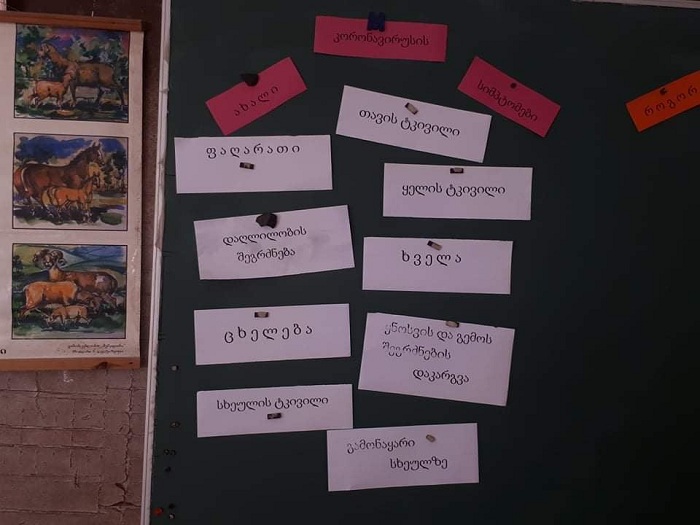 კორონავირუსის
ახალი
სიმპტომები
როგორ
თავის ტკივილი
ფაღარათი
ყელის ტკივილი
დაღლილობის
შეგრძნება
ხველა
ცხელება
ყნოსვის და გემოს
შეგრძნების
დაკარგვა
სხეულის ტკივილი
გამონაყარი
სხეულზე